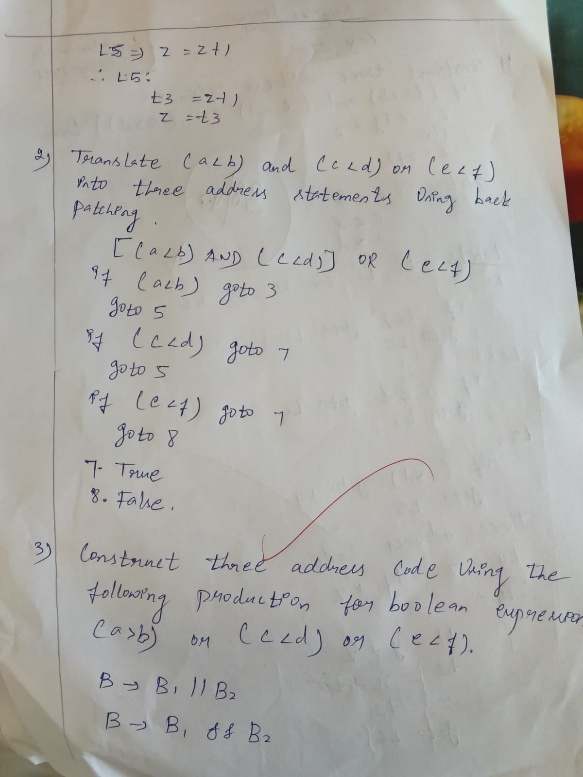 L5 ⇒ z = z+1
∴ L5:
t3 = z+1
z = t3
2) Translate (a<b) and (c<d) or (e<f)
into three address statements Using back
patching.
[(a<b) AND (c<d)] OR (e<f)
if (a<b) goto 3
goto 5
if (c<d) goto 7
goto 5
if (e<f) goto 7
goto 8
7. True
8. False.
3) Construct three address code Using the
following production for boolean expression
(a>b) or (c<d) or (e<f).
B → B1 || B2
B → B1 && B2